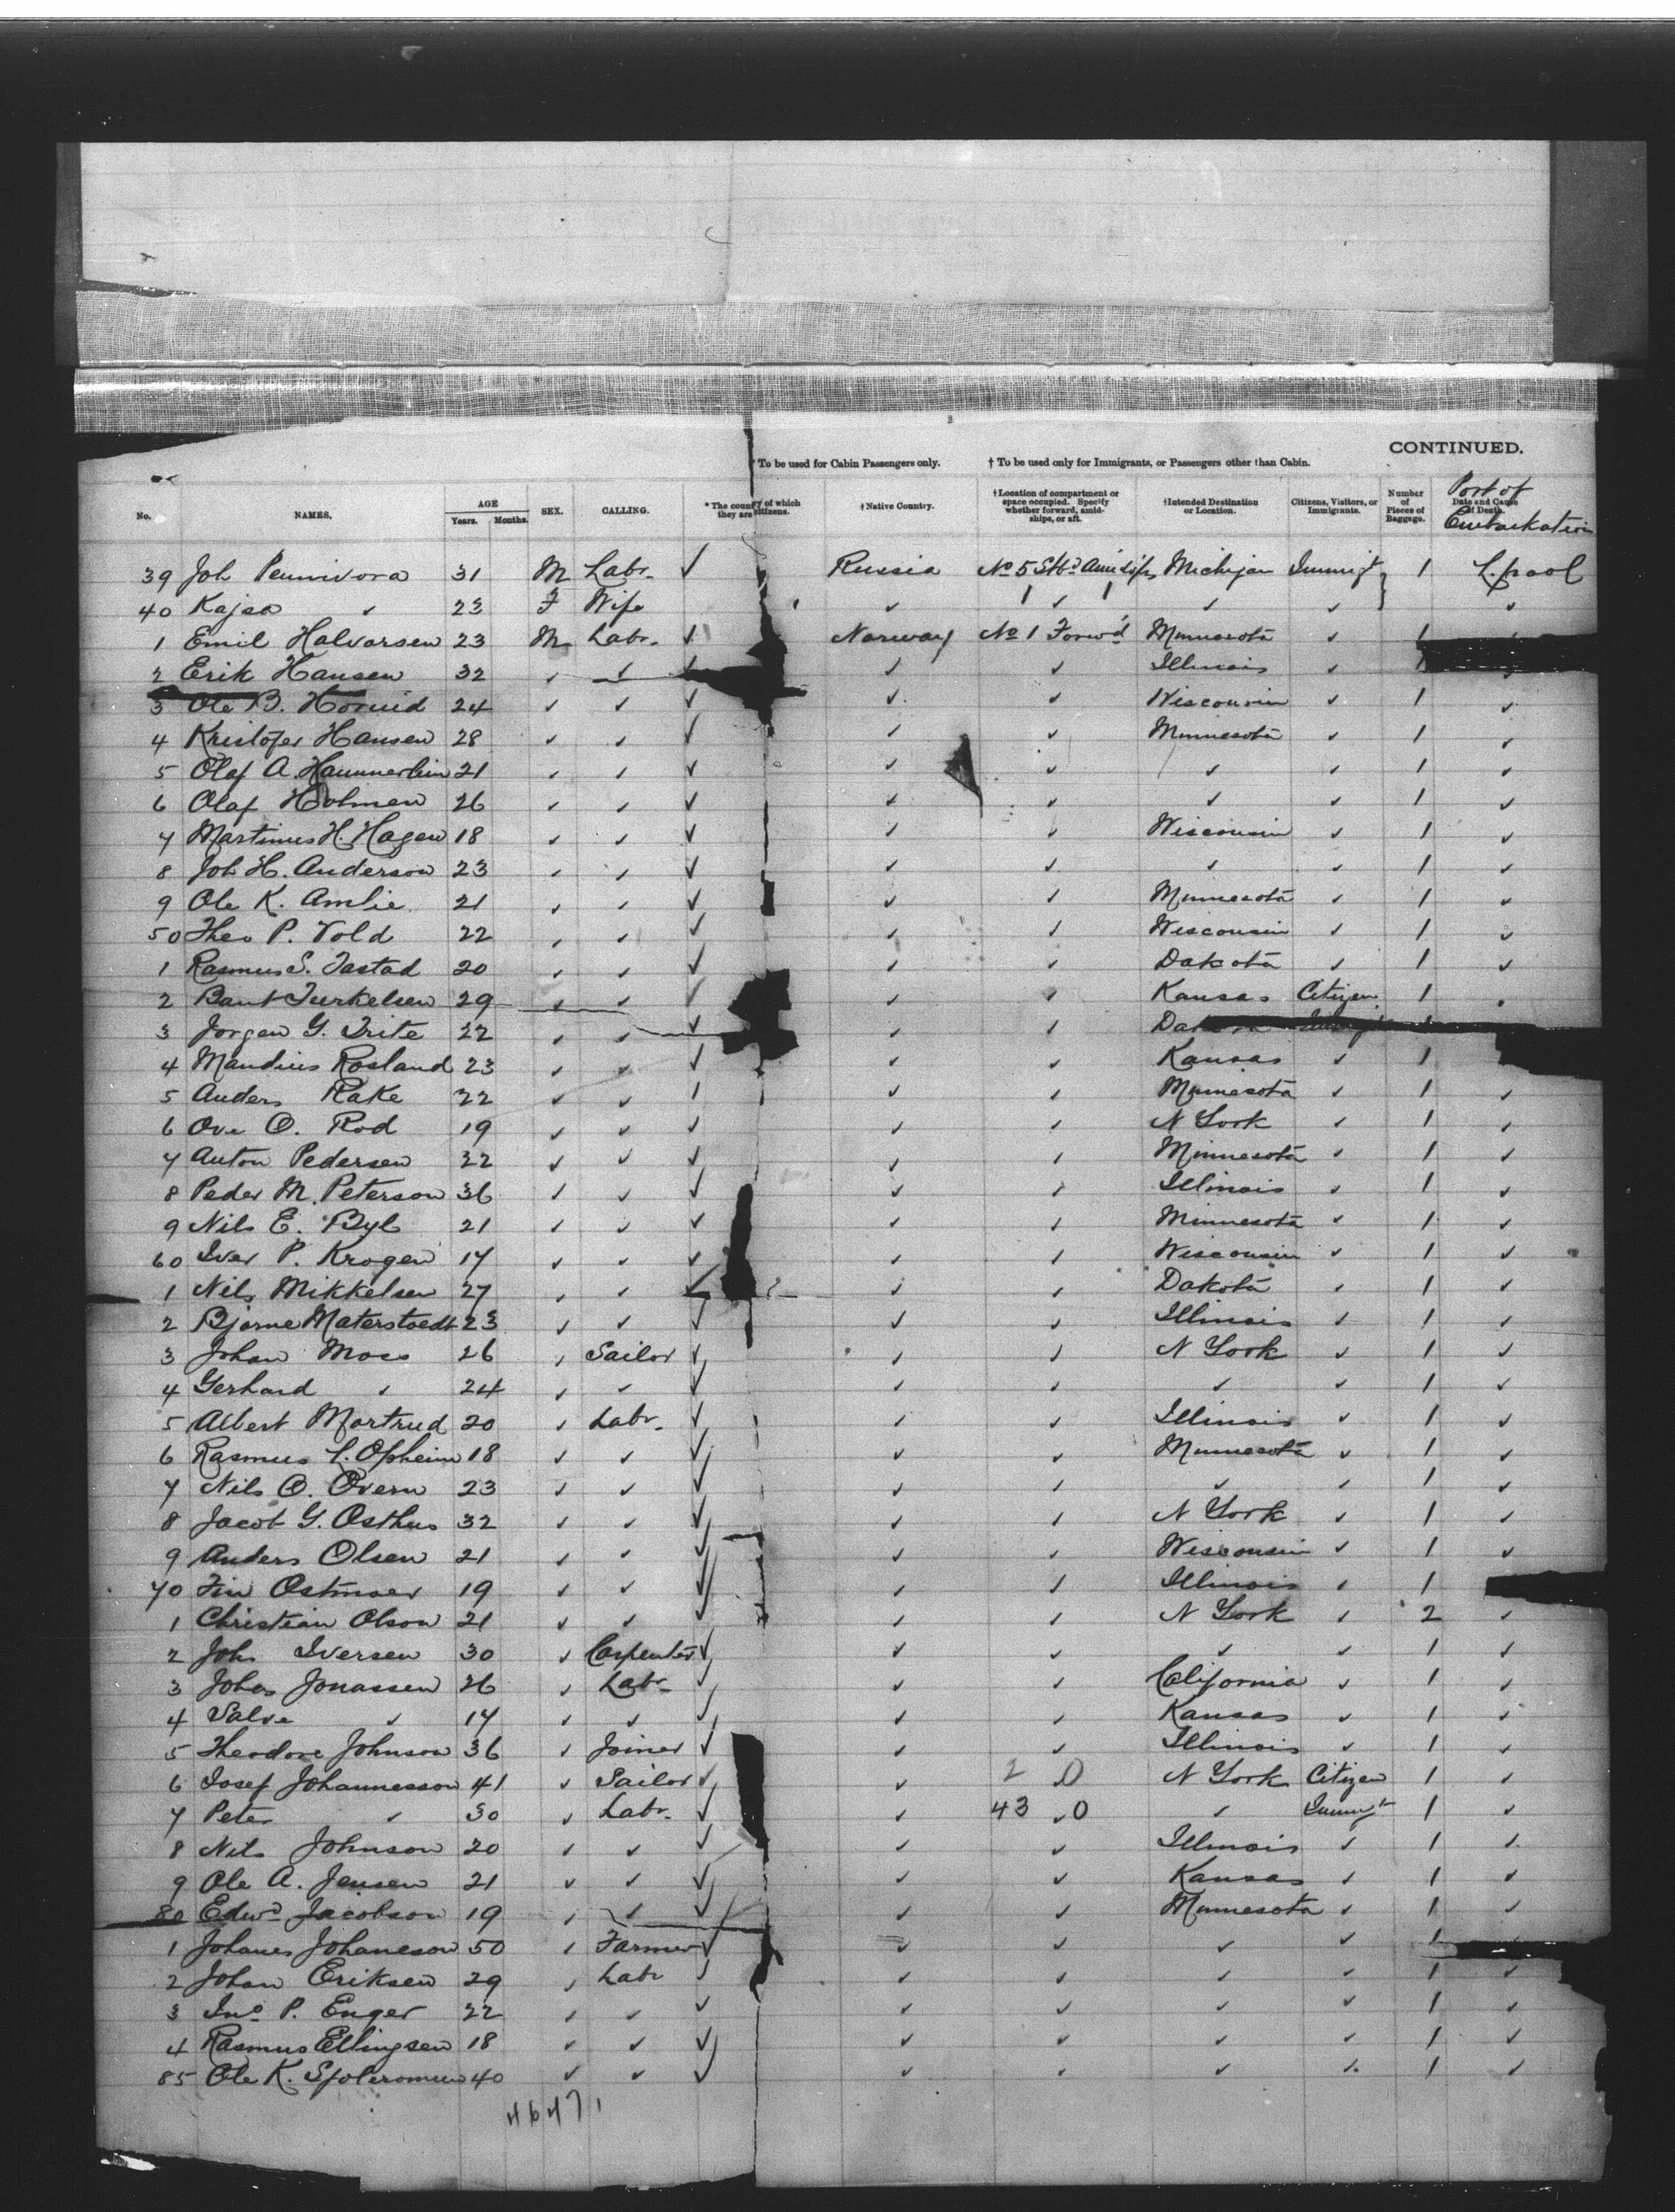 CONTINUED.
To be used for Cabin Passengers only. † To be used only for Immigrants, or Passengers other than Cabin.
No. NAMES. AGE Years. Months. SEX. CALLING. * The country of which they are citizens. † Native Country. † Location of compartment or space occupied. Specify whether forward, amidships, or aft. † Intended Destination or Location. Citizens, Visitors, or Immigrants. Number of Pieces of Baggage. Date and Cause of Death. Port of Embarkation
39 Joh 31 M Labr. ✓ Russia No 5 Michigan Immigt 1 L.pool
40 Kajsa ✓ 23 F Wife ✓ ✓ ✓ ✓ ✓
1 Emil Halvorsen 23 M Labr. ✓ Norway No 1 Forwd Minnesota ✓ 1 ✓
2 Erik Hansen 32 ✓ ✓ ✓ ✓ ✓ Illinois ✓ 1 ✓
3 Ole B. 24 ✓ ✓ ✓ ✓ ✓ Wisconsin ✓ 1 ✓
4 Kristofer Hansen 28 ✓ ✓ ✓ ✓ ✓ Minnesota ✓ 1 ✓
5 Olaf A. 21 ✓ ✓ ✓ ✓ ✓ ✓ ✓ 1 ✓
6 Olaf Holmen 26 ✓ ✓ ✓ ✓ ✓ ✓ ✓ 1 ✓
7 Martinus H. Hagen 18 ✓ ✓ ✓ ✓ ✓ Wisconsin ✓ 1 ✓
8 Joh H. Anderson 23 ✓ ✓ ✓ ✓ ✓ ✓ ✓ 1 ✓
9 Ole K. Amlie 21 ✓ ✓ ✓ ✓ ✓ Minnesota ✓ 1 ✓
50 Theo P. Vold 22 ✓ ✓ ✓ ✓ ✓ Wisconsin ✓ 1 ✓
1 Rasmus S. Tastad 20 ✓ ✓ ✓ ✓ ✓ Dakota ✓ 1 ✓
2 Turkelsen 29 ✓ ✓ ✓ ✓ ✓ Kansas Citizen 1 ✓
3 Jorgen G. Trite 22 ✓ ✓ ✓ ✓ ✓ Dakota
4 Mandius Rosland 23 ✓ ✓ ✓ ✓ ✓ Kansas ✓ 1
5 Anders Rake 22 ✓ ✓ ✓ ✓ ✓ Minnesota ✓ 1 ✓
6 Ove O. Rod 19 ✓ ✓ ✓ ✓ ✓ N York ✓ 1 ✓
7 Anton Pedersen 22 ✓ ✓ ✓ ✓ ✓ Minnesota ✓ 1 ✓
8 Peder M. Peterson 36 ✓ ✓ ✓ ✓ ✓ Illinois ✓ 1 ✓
9 Nils E. Byl 21 ✓ ✓ ✓ ✓ ✓ Minnesota ✓ 1 ✓
60 Iver P. Krogen 17 ✓ ✓ ✓ ✓ ✓ Wisconsin ✓ 1 ✓
1 Nils Mikkelsen 27 ✓ ✓ ✓ ✓ ✓ Dakota ✓ 1 ✓
2 Bjorne Materstoedt 23 ✓ ✓ ✓ ✓ ✓ Illinois ✓ 1 ✓
3 Johan Moss 26 ✓ Sailor ✓ ✓ ✓ N York ✓ 1 ✓
4 Gerhard ✓ 24 ✓ ✓ ✓ ✓ ✓ ✓ ✓ 1 ✓
5 Albert Mortrud 20 ✓ Labr. ✓ ✓ ✓ Illinois ✓ 1 ✓
6 Rasmus L. Opheim 18 ✓ ✓ ✓ ✓ ✓ Minnesota ✓ 1 ✓
7 Nils O. Overn 23 ✓ ✓ ✓ ✓ ✓ ✓ ✓ 1 ✓
8 Jacob G. Osthus 32 ✓ ✓ ✓ ✓ ✓ N York ✓ 1 ✓
9 Anders Olsen 21 ✓ ✓ ✓ ✓ ✓ Wisconsin ✓ 1 ✓
70 Fin Ostmoer 19 ✓ ✓ ✓ ✓ ✓ Illinois ✓ 1
1 Christian Olson 21 ✓ ✓ ✓ ✓ ✓ N York ✓ 2 ✓
2 Joh Iversen 30 ✓ Carpenter ✓ ✓ ✓ ✓ ✓ 1 ✓
3 Johan Jonassen 26 ✓ Labr. ✓ ✓ ✓ California ✓ 1 ✓
4 Salve ✓ 17 ✓ ✓ ✓ ✓ ✓ Kansas ✓ 1 ✓
5 Theodore Johnson 36 ✓ Joiner ✓ ✓ ✓ Illinois ✓ 1 ✓
6 Josef Johannesson 41 ✓ Sailor ✓ ✓ 2 0 N York Citizen 1 ✓
7 Peter ✓ 30 ✓ Labr. ✓ ✓ 43 0 ✓ Immigt 1 ✓
8 Nils Johnson 20 ✓ ✓ ✓ ✓ ✓ Illinois ✓ 1 ✓
9 Ole A. Jensen 21 ✓ ✓ ✓ ✓ ✓ Kansas ✓ 1 ✓
80 Edwd Jacobson 19 ✓ ✓ ✓ ✓ ✓ Minnesota ✓ 1 ✓
1 Johanes Johaneson 50 ✓ Farmer ✓ ✓ ✓ ✓ ✓ 1 ✓
2 Johan Eriksen 29 ✓ Labr ✓ ✓ ✓ ✓ ✓ 1 ✓
3 Jno P. Enger 22 ✓ ✓ ✓ ✓ ✓ ✓ ✓ 1 ✓
4 Rasmus Ellingsen 18 ✓ ✓ ✓ ✓ ✓ ✓ ✓ 1 ✓
85 Ole K. 40 ✓ ✓ ✓ ✓ ✓ ✓ ✓ 1 ✓